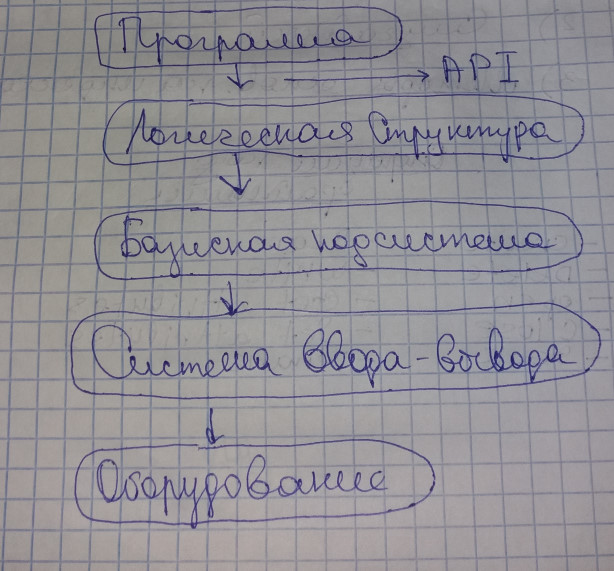 Программа
API
Логическая Структура
Базисная подсистема
Система ввода-вывода
Оборудование